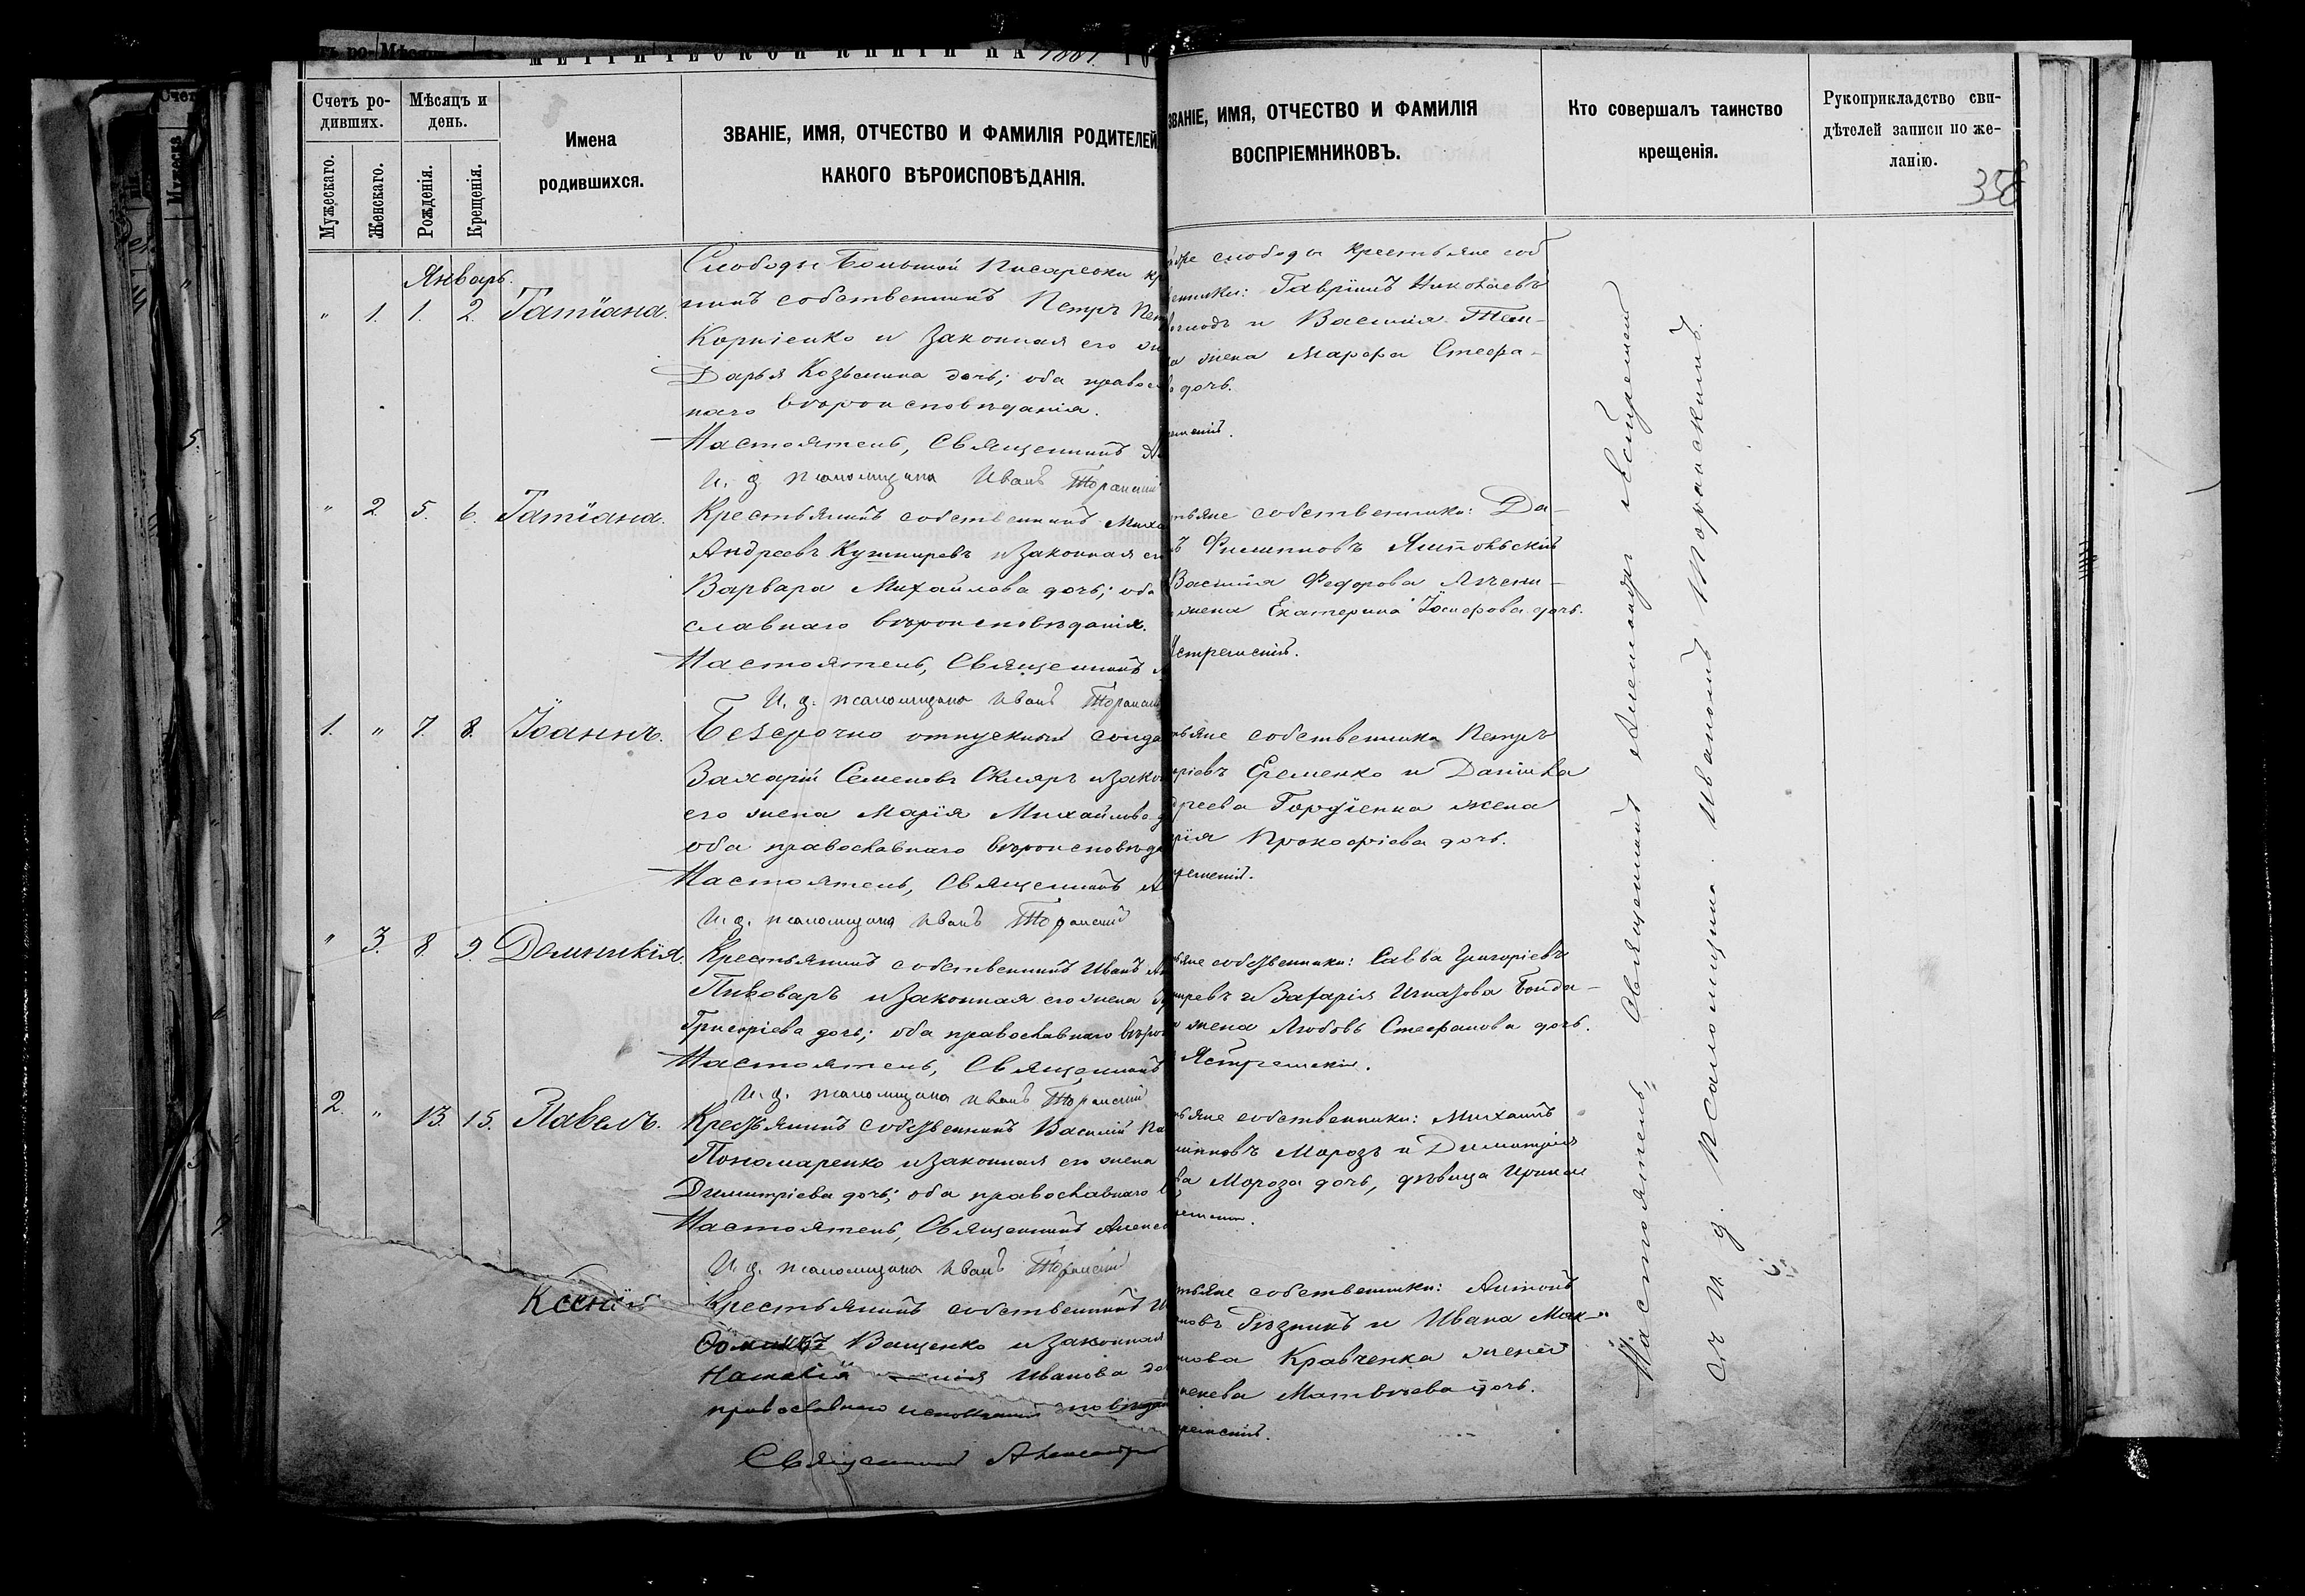 МЕТРИЧЕСКОЙ КНИГИ НА 1881 ГО
Счетъ ро-
дивших.
Мужескаго.
Женскаго.
Мѣсяцъ и
день.
Рожденія.
Крещенія.
Имена
родившихся.
ЗВАНІЕ, ИМЯ, ОТЧЕСТВО И ФАМИЛІЯ РОДИТЕЛЕЙ
КАКОГО ВѢРОИСПОВѢДАНІЯ.
ЗВАНІЕ, ИМЯ, ОТЧЕСТВО И ФАМИЛІЯ
ВОСПРІЕМНИКОВЪ.
Кто совершалъ таинство
крещенія.
Рукоприкладство сви-
дѣтелей записи по же-
ланію.
Январь.
" 1. 1. 2. Татіана.
Слободы Большой Писаревки кр
нинъ собственникъ Петръ Пет
Корніенко и законная его же
Дарья Козьмина дочь; оба правос
наго вѣроисповѣданія.
Настоятель, Священникъ А
И. д. псаломщика Иванъ Торанскій
слободы крестьяне соб
венники: Гавріилъ Николаевъ
и Василія
жена Марфа Стефа-
дочь.
" 2. 5. 6. Татіана.
Крестьянинъ собственникъ Миха
Андреевъ Кушниревъ и законная ег
Варвара Михайлова дочь; оба
славнаго вѣроисповѣданія.
Настоятель, Священникъ
И. д. псаломщика Иванъ Торанскі
тьяне собственники: Да-
ъ Филипповъ
Василія Федорова
жена Екатерина Іосифова дочь.
Ястремскій.
1. " 7. 8. Іоаннъ.
Безсрочно отпускной солда
Захарій Семеновъ Скляръ и зако
его жена Марія Михайлова д
оба православнаго вѣроисповѣда
Настоятель, Священникъ А
И. д. псаломщика Иванъ Торанскій
тьяне собственники Петръ
оріевъ Еременко и Даніила
дреева Гордіенка жена
рія Прокофіева дочь.
ремскій.
" 3. 8. 9. Домникія.
Крестьянинъ собственникъ Иванъ
Пивоваръ и законная его жена
Григоріева дочь; оба православнаго вѣро
Настоятель, Священникъ
И. д. псаломщика Иванъ Торанскій
тьяне собственники: Савва Григоріевъ
ниревъ и Захарія
жена Любовь Стефанова дочь.
Ястремскій.
2. " 13. 15. Павелъ.
Крестьянинъ собственникъ Василій Па
Пономаренко и законная его жена
Димитріева дочь; оба православнаго в
Настоятель, Священникъ Алекса
И. д. псаломщика Иванъ Торанскій
тьяне собственники: Михаилъ
липповъ Морозъ и Димитрія
ва Мороза дочь, дѣвица Ирина
Ксенія
Крестьянинъ собственникъ И
Ващенко и законная
Наталія Иванова до
православнаго
Священникъ Александръ
тьяне собственники: Антонъ
новъ Рѣзникъ и Ивана Мак-
мова Кравченка жена
Матвѣева дочь.
ремскій.
Настоятель, Священникъ Александръ Ястремскій
съ и. д. псаломщика Иваномъ Торанскимъ.